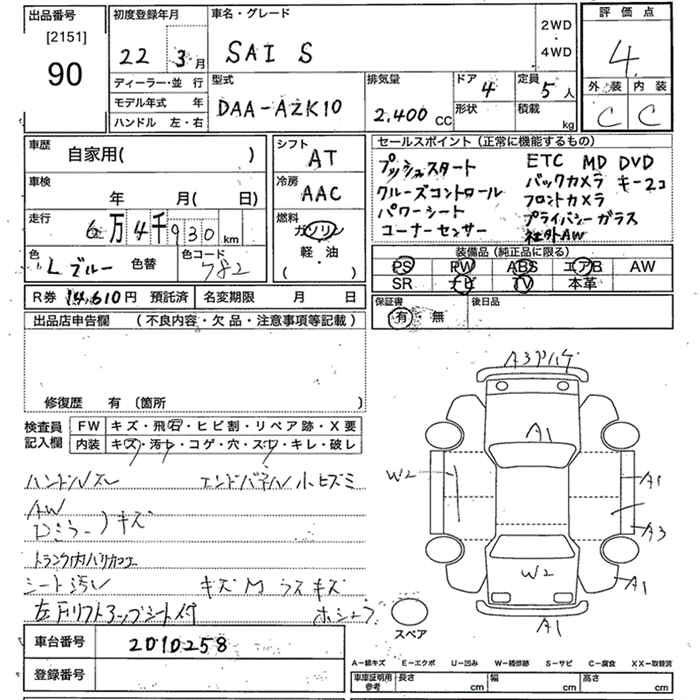 出品番号 初度登録年月 車名・グレード 2WD・4WD 評価点
[2151]
90 22 3月 SAI S 4
ディーラー・並 行 型式 排気量 ドア 4 定員 5人 外装 内装
モデル年式 年 DAA-AZK10 2,400 CC 形状 積載 kg C C
ハンドル 左・右
車歴 自家用( ) シフト AT セールスポイント(正常に機能するもの)
プッシュスタート ETC MD DVD
車検 年 月( 日) 冷房 AAC クルーズコントロール バックカメラ キー2コ
パワーシート フロントカメラ
走行 6万4千930km 燃料 ガソリン コーナーセンサー プライバシーガラス
軽・油 社外AW
色 Lブルー 色替 色コード 782 ( ・ )
装備品(純正品に限る)
PS PW ABS エアB AW
SR ナビ TV 本革
R券 14,610円 預託済 名変期限 月 日 保証書 有・無 後日品
出品店申告欄 (不良内容・欠品・注意事項等記載)
修復歴 有 (箇所
検査員記入欄 FW キズ・飛石・ヒビ割・リペア跡・X要
内装 キズ・汚レ・コゲ・穴・スレ・キレ・破レ
ハンドルスレ
AW
Dミラー)キズ
シート汚レ
左 リフトアップシート付
A1
W2 A1
A3
W2 A1
A1
スペア
車台番号 2010258
登録番号
A-線キズ E-エクボ U-凹み W-補修跡 S-サビ C-腐食 XX-取替済
車庫証明用参考 長さ cm 幅 cm 高さ cm